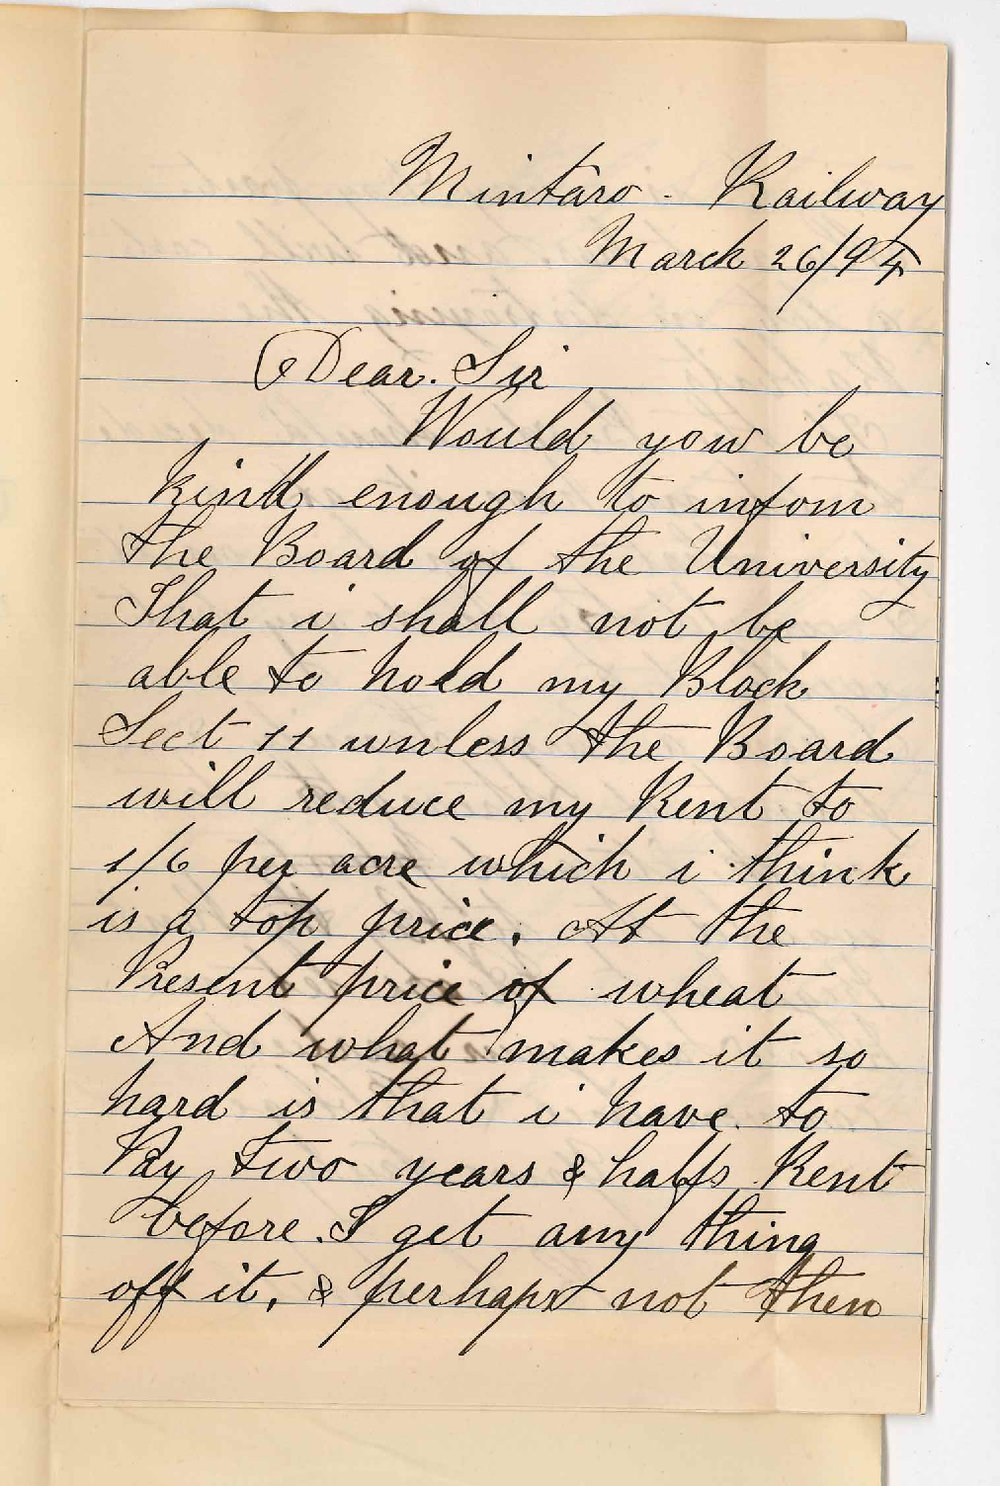 Mintaro - Railway
March 26/94
Dear. Sir
Would yow be
kind enough to infom
the Board of the University
That i shall not be
able to hold my Block
Sect 11 unless the Board
will reduce my Rent to
1/6 per acre which i think
is a top price. At the
Present price of wheat
And what makes it so
hard is that i have to
Pay two years & halfs Rent
before I get any thing
off it, & perhaps not then